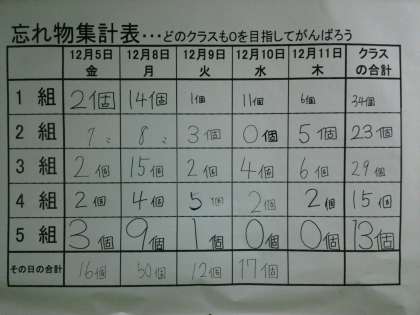 忘れ物集計表・・・どのクラスも0を目指してがんばろう
12月5日 金 12月8日 月 12月9日 火 12月10日 水 12月11日 木 クラスの合計
1組 2個 14個 1個 11個 6個 34個
2組 7こ 8こ 3個 0個 5個 23個
3組 2個 15個 2個 4個 6個 29個
4組 2個 4個 5個 2個 2個 15個
5組 3個 9個 1個 0個 0個 13個
その日の合計 16個 50個 12個 17個